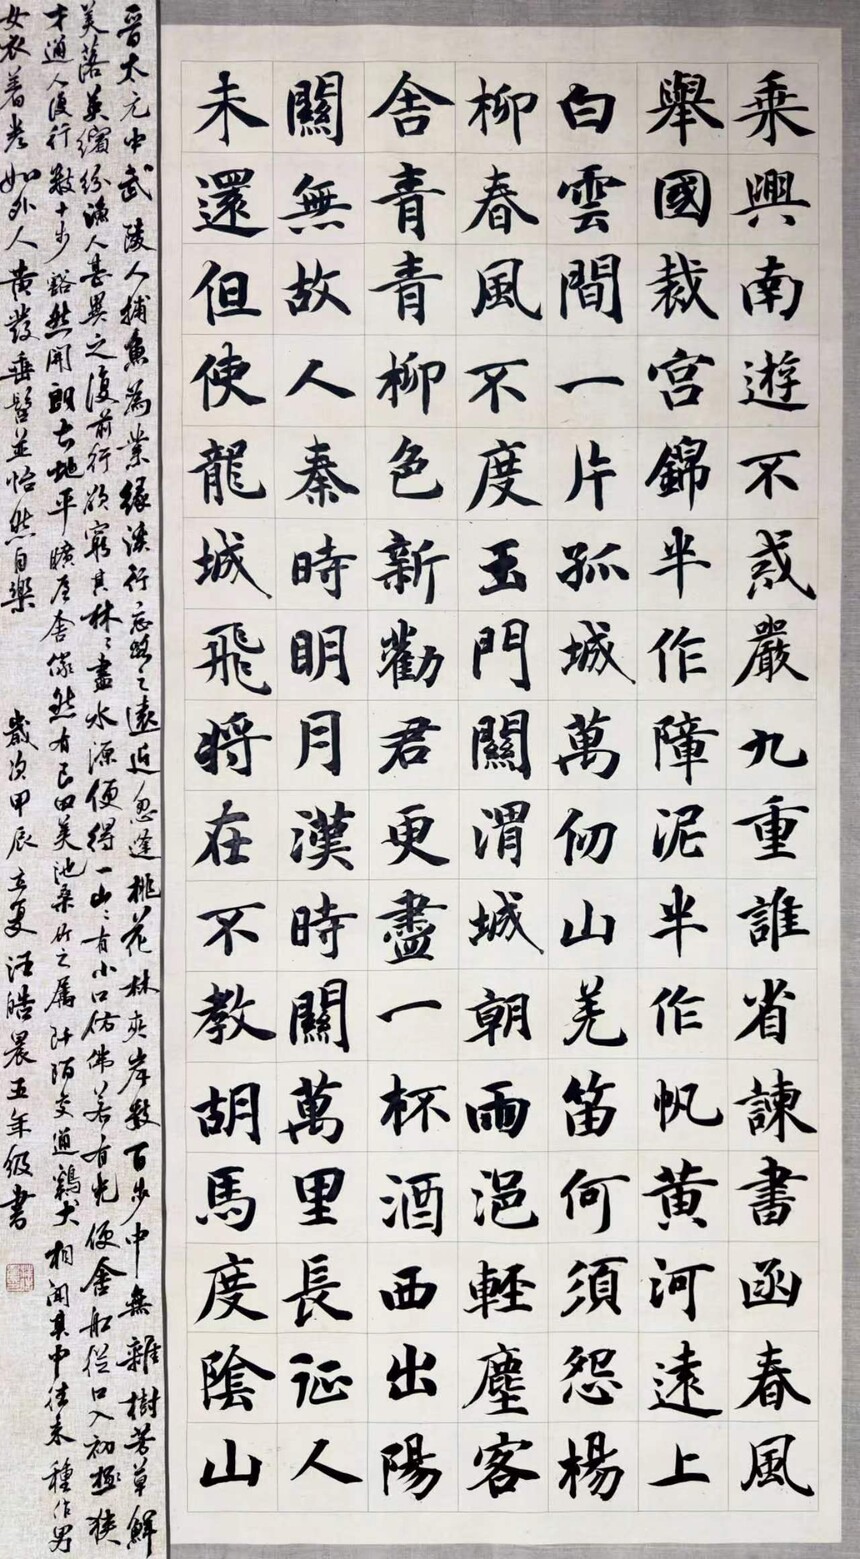 乘興南遊不戒嚴九重誰省諫書函春風
舉國裁宮錦半作障泥半作帆黃河遠上
白雲間一片孤城萬仞山羌笛何須怨楊
柳春風不度玉門關渭城朝雨浥輕塵客
舍青青柳色新勸君更盡一杯酒西出陽
關無故人秦時明月漢時關萬里長征人
未還但使龍城飛將在不教胡馬度陰山
晉太元中武陵人捕魚為業緣溪行忘路之遠近忽逢桃花林夾岸數百步中無雜樹芳草鮮
美落英繽紛漁人甚異之復前行欲窮其林〻盡水源便得一山〻有小口仿佛若有光便舍船從口入初極狹
才通人復行數十步豁然開朗土地平曠屋舍儼然有良田美池桑竹之屬阡陌交通鷄犬相聞其中往來種作男
女衣著悉如外人黃髮垂髫並怡然自樂
歲次甲辰立夏汪皓晨五年級書